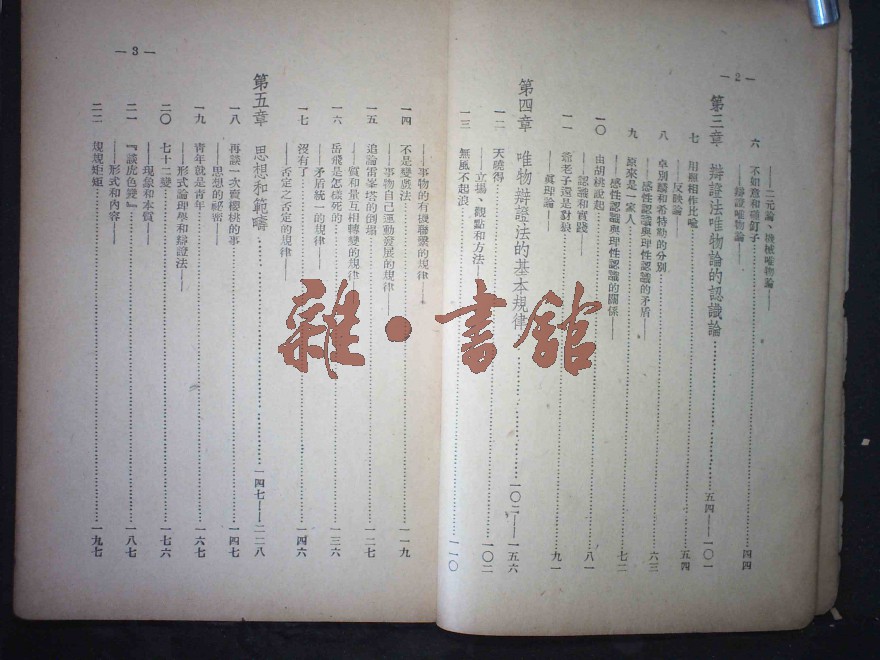 —2—
——二元論、機械唯物論——
六 不如意和碰釘子……四四
——辯證唯物論——
第三章 辯證法唯物論的認識論……五四——一〇一
七 用照相作比喻……五四
——反映論——
八 卓別麟和希特勒的分別……六三
——感性認識與理性認識的矛盾——
九 原來是一家人……七二
——感性認識與理性認識的關係——
一〇 由胡桃說起……八一
——認識和實踐——
一一 爺老子還是對狼……九一
——眞理論——
第四章 唯物辯證法的基本規律……一〇二——一五六
一二 天曉得……一〇二
——立場、觀點和方法——
一三 無風不起浪……一一〇
—3—
——事物的有機聯繫的規律——
一四 不是變戲法……一一九
——事物自己運動發展的規律——
一五 追論雷峯塔的倒塌……一二七
——質和量互相轉變的規律——
一六 岳飛是怎樣死的……一三六
——矛盾統一的規律——
一七 沒有了……一四六
——否定之否定的規律——
第五章 思想和範疇……一四七——二二八
一八 再談一次賣櫻桃的事……一四七
——思想的祕密——
一九 青年就是青年……一六七
——形式論理學和辯證法——
二〇 七十二變……一七六
——現象和本質——
二一 『談虎色變』……一八七
——形式和內容——
二二 規規矩矩……一九七
雜·書舘